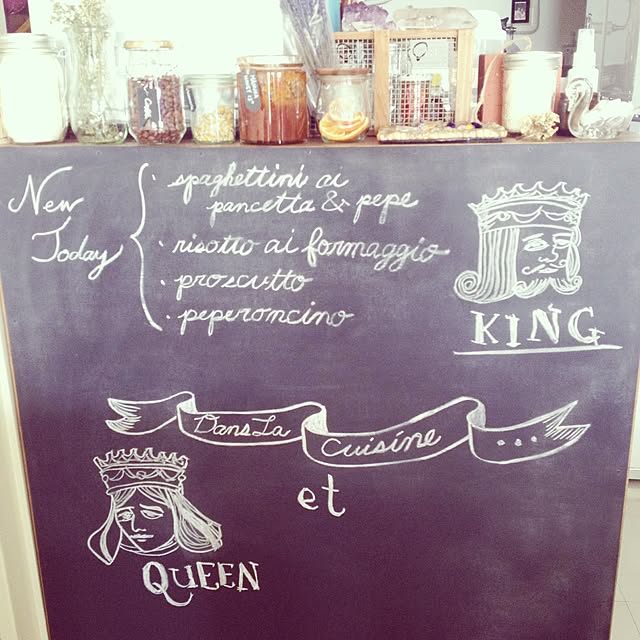 New
Today
· spaghettini ai
pancetta & pepe
· risotto ai formaggio
· proscutto
· peperoncino
KING
Dans La
cuisine
...
et
QUEEN